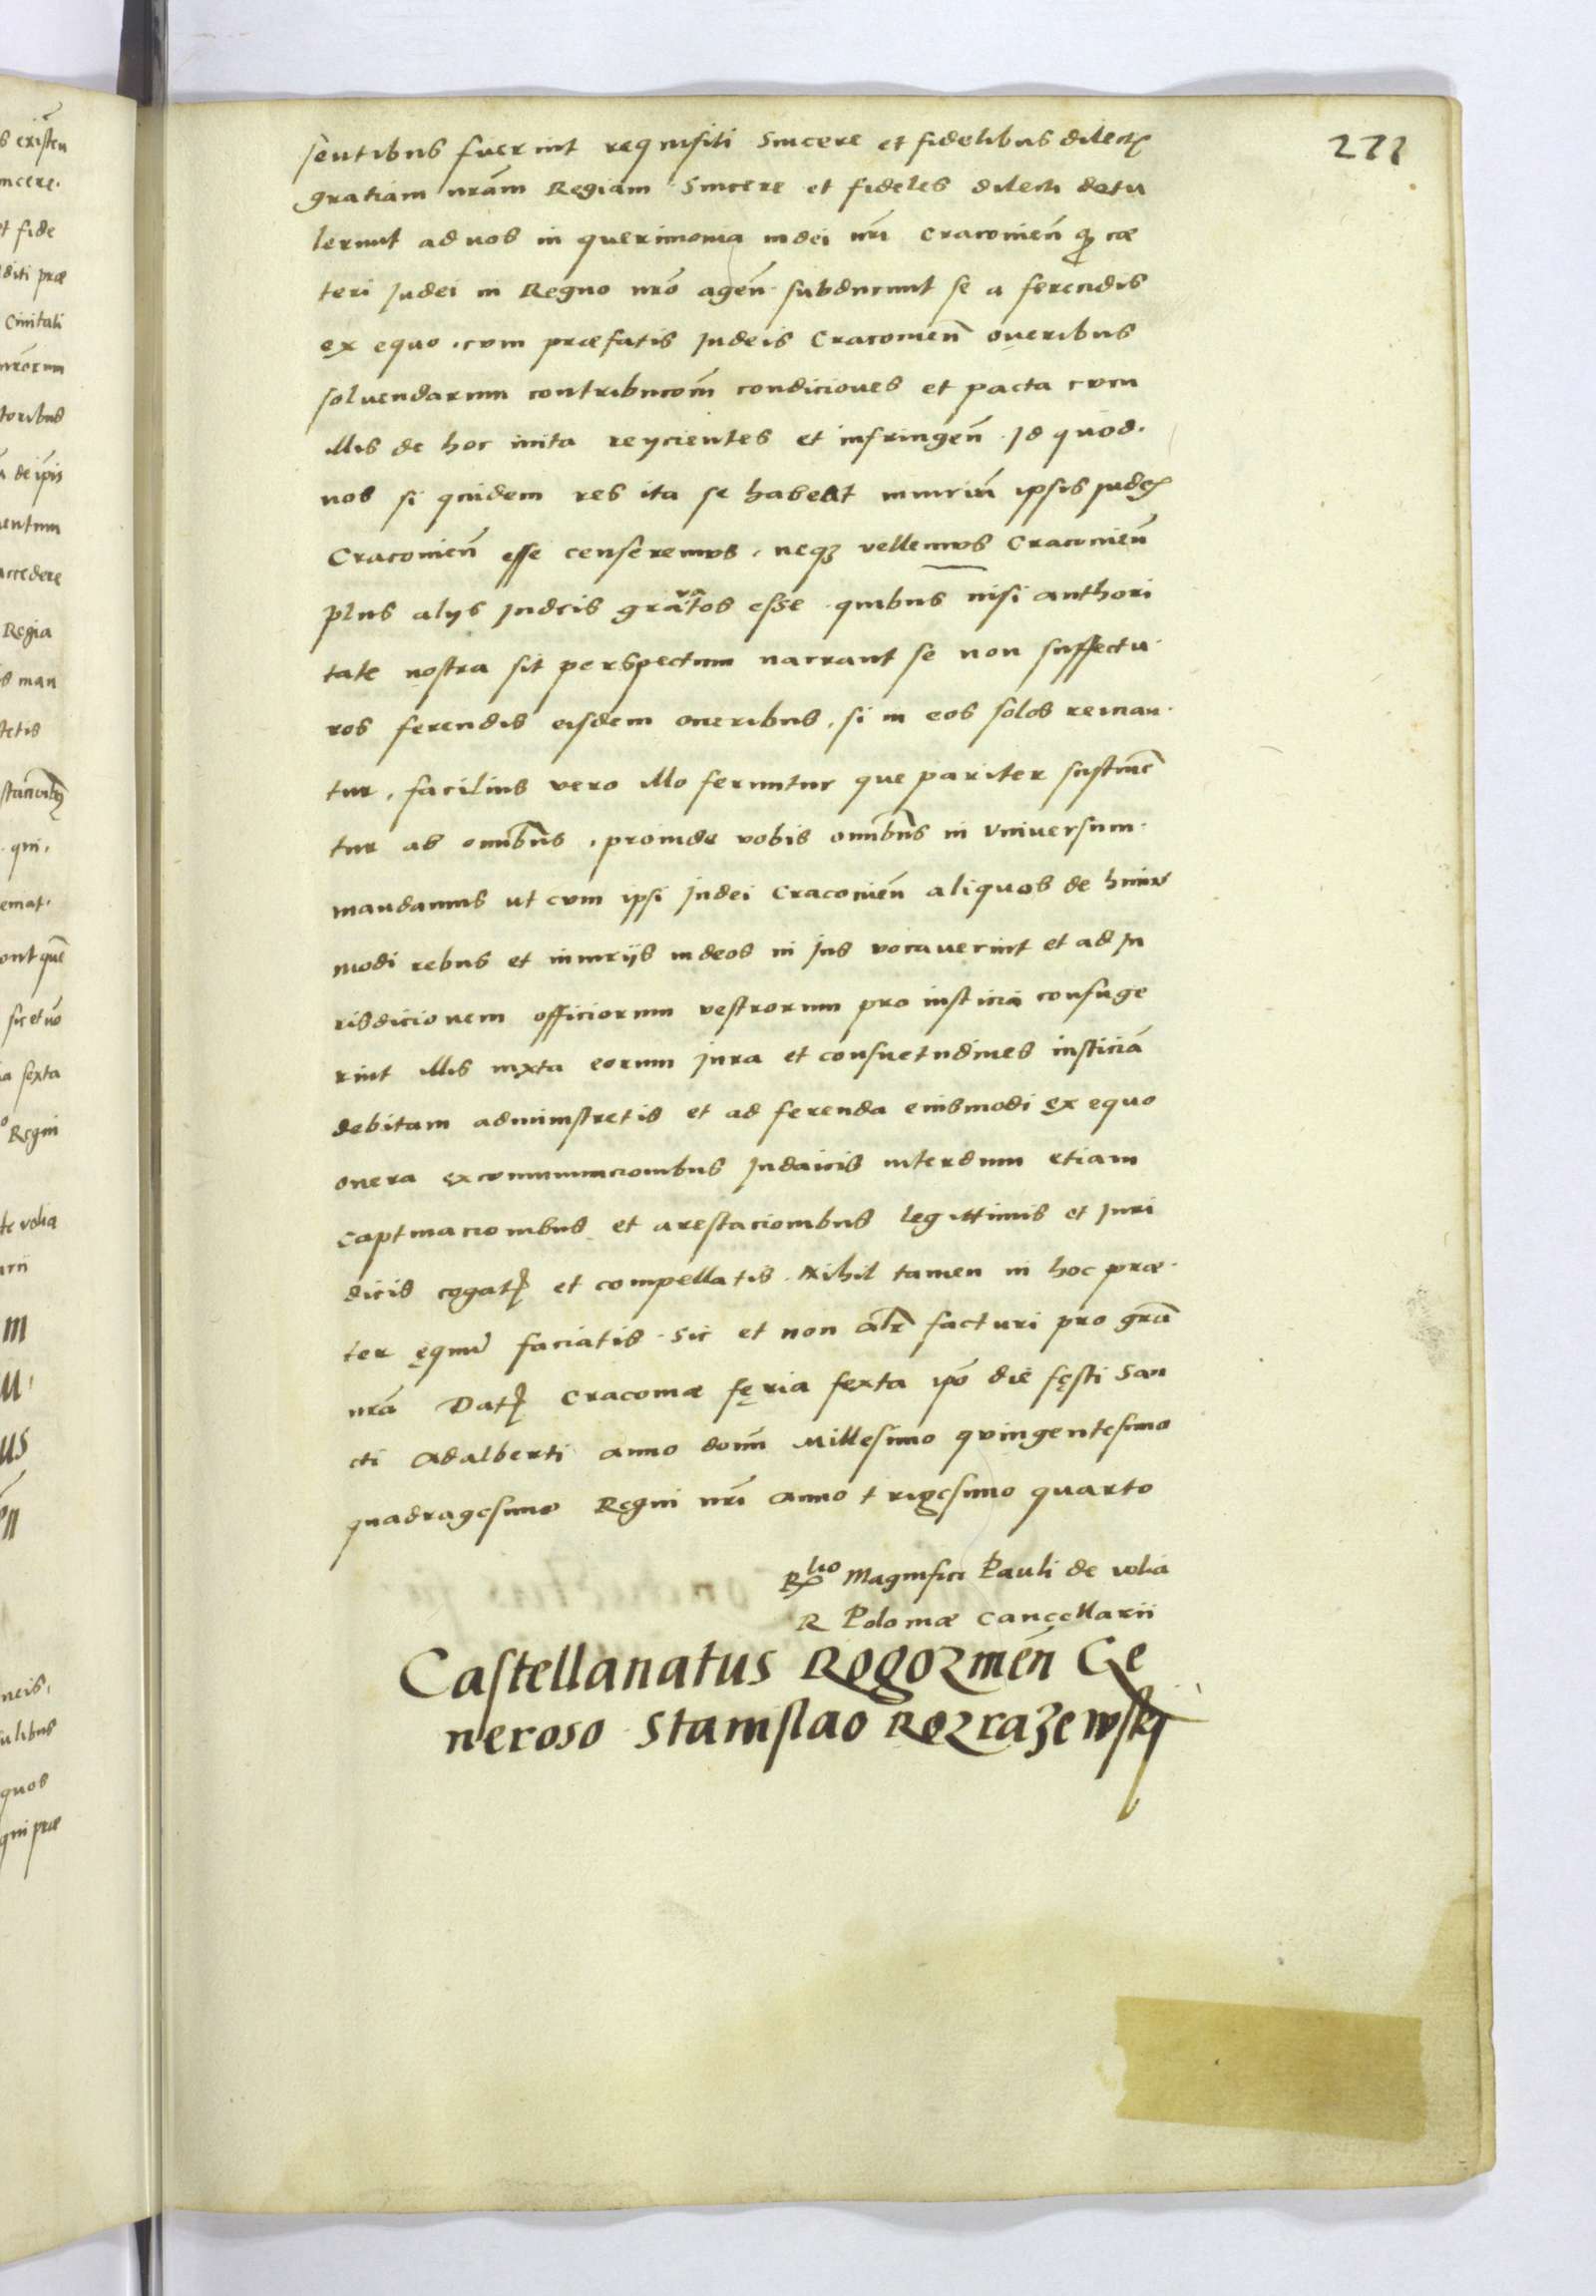 271
sentibus fuerint requisiti Sincere et fidelibus dilectis
gratiam nrãm Regiam Sincere et fideles dilecti detu
lerunt ad nos in querimonia iudei nrĩ Cracovieñ qꝫ cæ
teri Judei in Regno nrõ ageñ subducunt se a ferendis
ex equo cum præfatis Judeis Cracovieñ oneribus
solvendarum contribucõm condiciones et pacta cum
illis de hoc inita reijcientes et infringeñ Id quod
nos si quidem res ita se habeat iniuriũ ipsis judeis
Cracovieñ esse censeremus, neqꝫ vellemus Cracovieñ
plus alijs Judeis gravatos esse quibus nisi authori
tate nostra sit perspectum narrant se non suffectu
ros ferendis eisdem oneribus, si in eos solos reinan
tur, facilius vero illo feruntur que pariter sustinẽ
tur ab omĩbus, proinde vobis omĩbus in Universum
mandamus ut cum ipsi Judei Cracovieñ aliquos de huius
modi rebus et iniurijs iudeos in Jus vocaverint et ad Ju
risdicionem officiorum vestrorum pro iusticia confuge
rint illis iuxta eorum Jura et consuetudines iusticiã
debitam administretis et ad ferenda eiusmodi ex equo
onera excommunicionibus Judaicis interdum etiam
captivacionibus et arestacionibus legittimis et Juri
dicis cogatis et compellatis. Nihil tamen in hoc præ
ter ęquũ faciatis. Sic et non alr̃ facturi pro grã
nrã Datꝭ Cracoviæ fęria sexta ip̃o die fęsti San
cti Adalberti anno domĩ Millesimo quingentesimo
quadragesimo Regni nrĩ anno trigesimo quarto
Rlõ Magnifici Pauli de volia
R Poloniæ Cancellarii
Castellanatus Rogoznieñ Ge
neroso Stanislao Rozrazewski